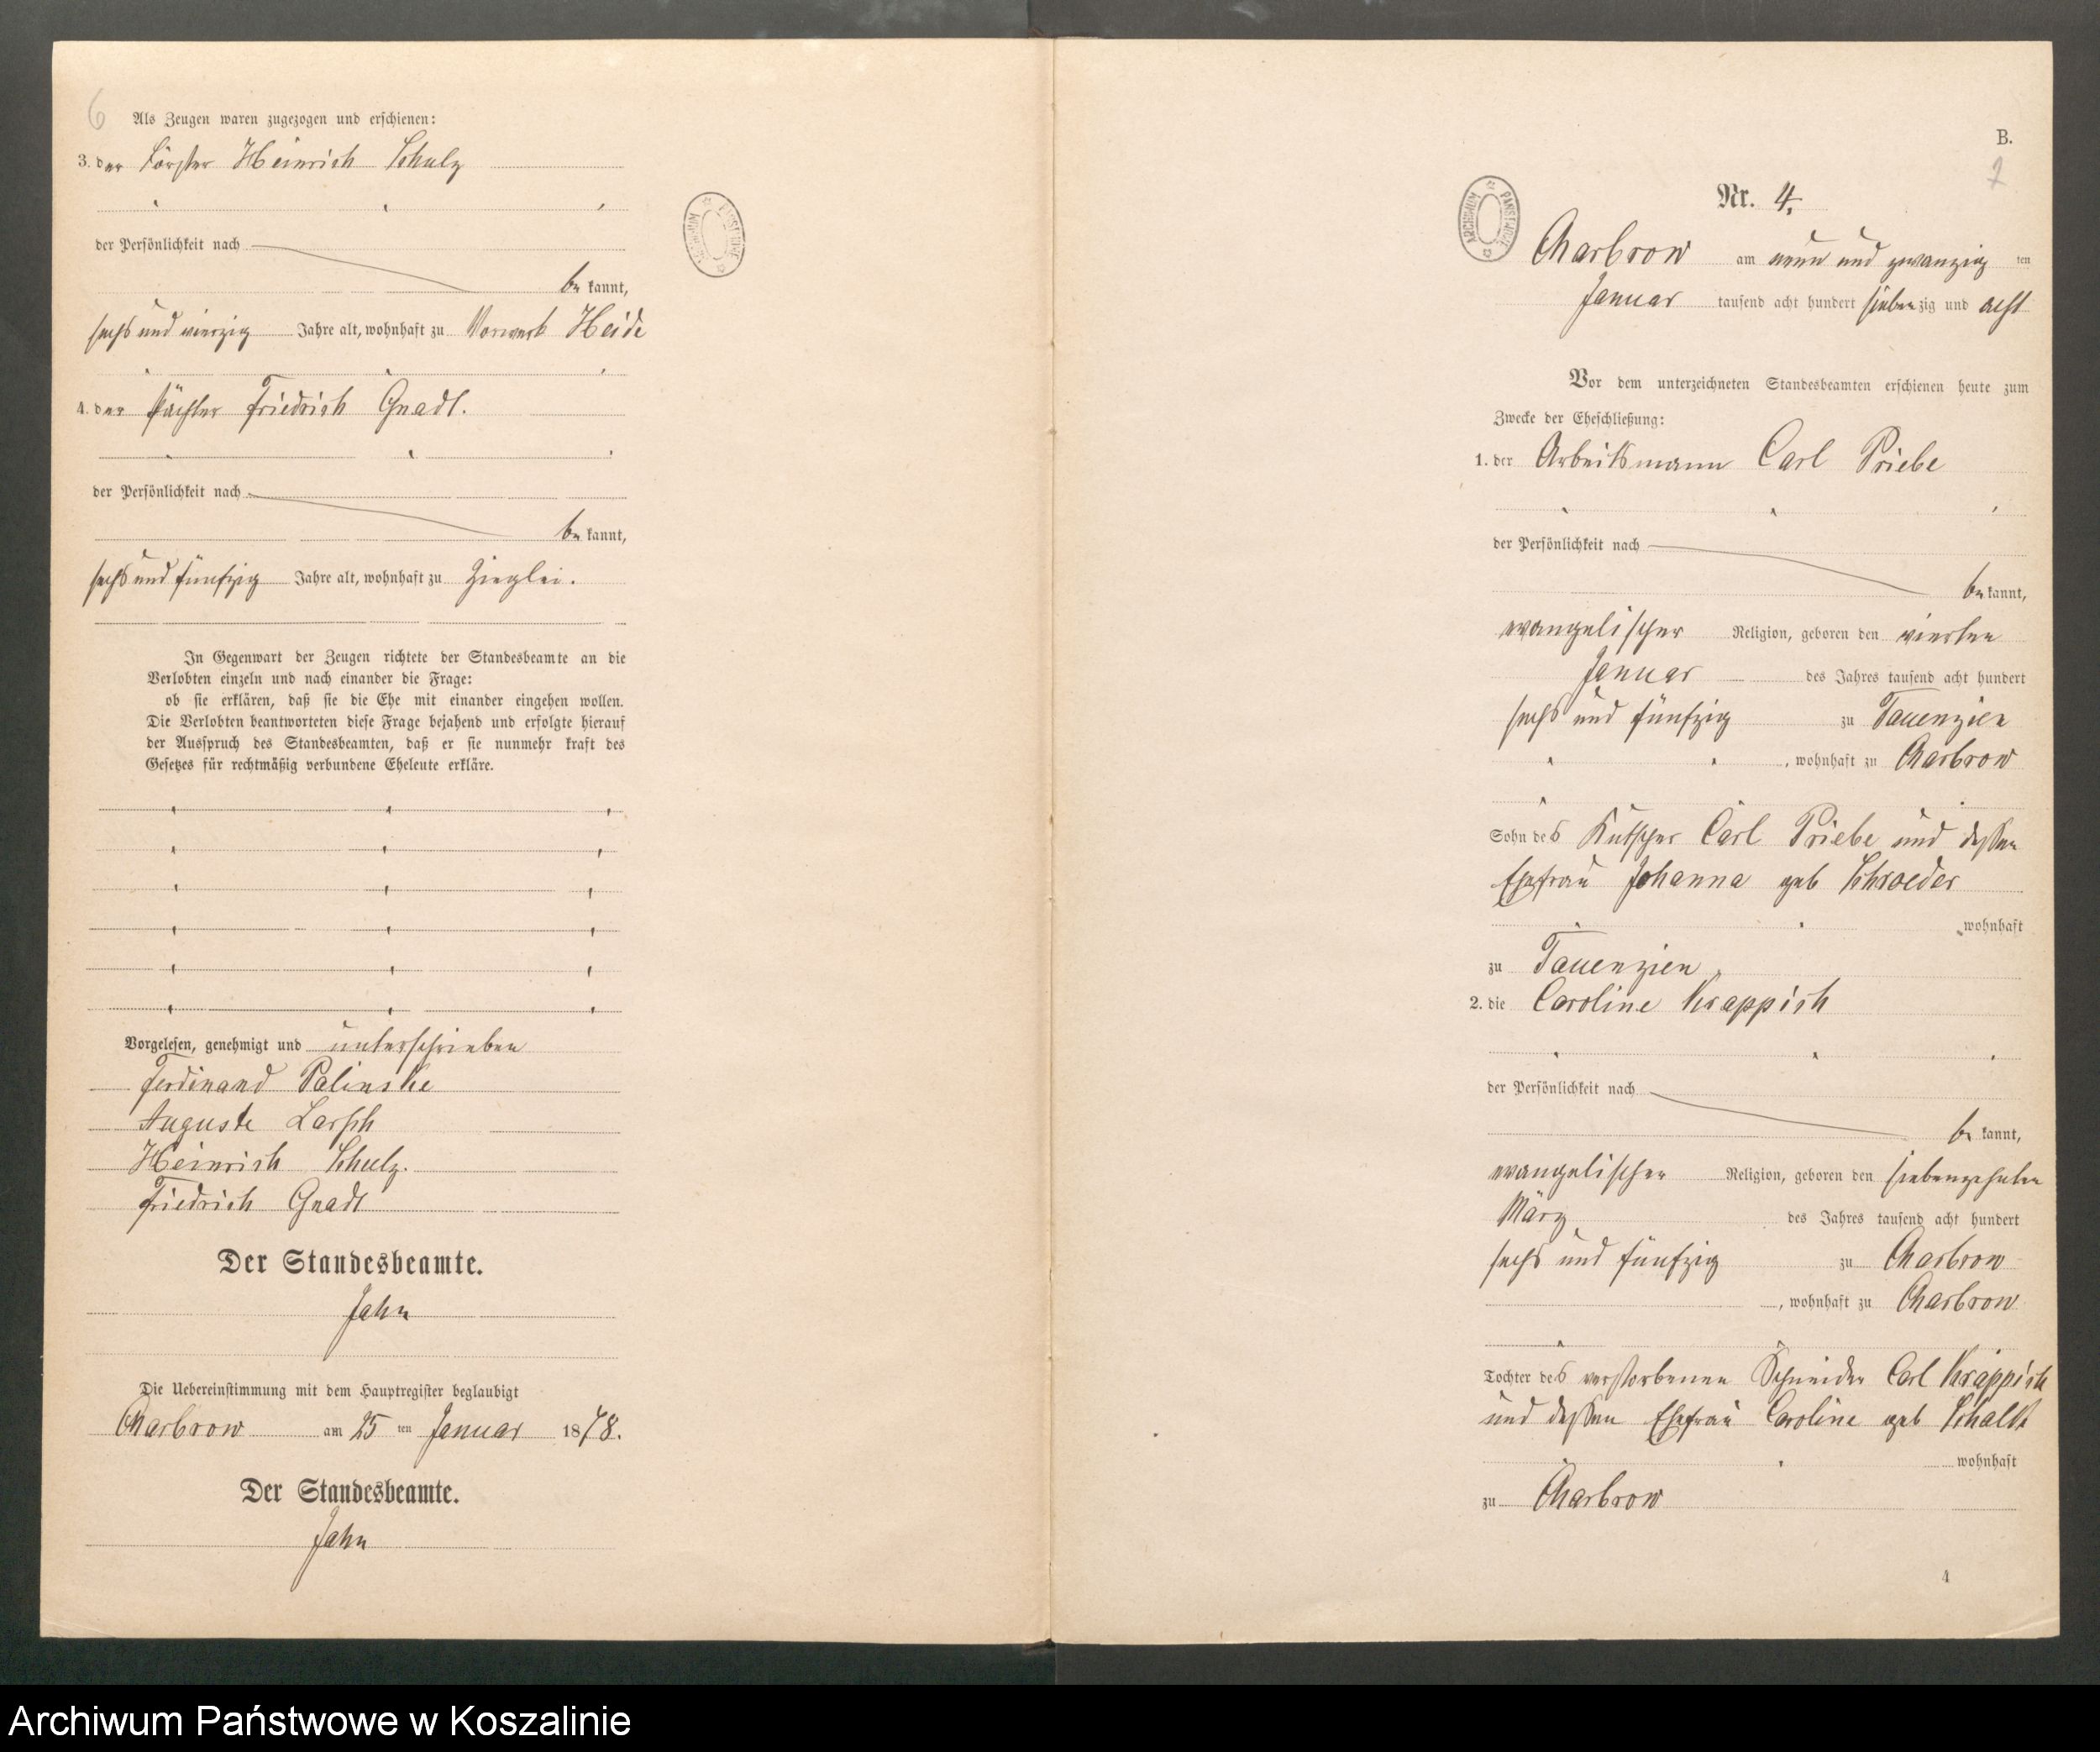 6
Als Zeugen waren zugezogen und erschienen:
3. der Förster Heinrich Schulz
der Persönlichkeit nach
be kannt,
sechs und vierzig Jahre alt, wohnhaft zu Vorwerk Heide
4. der Pächter Friedrich Gnadt.
der Persönlichkeit nach
be kannt,
sechs und fünfzig Jahre alt, wohnhaft zu Zieglei.
In Gegenwart der Zeugen richtete der Standesbeamte an die
Verlobten einzeln und nach einander die Frage:
ob sie erklären, daß sie die Ehe mit einander eingehen wollen.
Die Verlobten beantworteten diese Frage bejahend und erfolgte hierauf
der Ausspruch des Standesbeamten, daß er sie nunmehr kraft des
Gesetzes für rechtmäßig verbundene Eheleute erkläre.
Vorgelesen, genehmigt und unterschrieben
Ferdinand Palinske
Auguste Larsch
Heinrich Schulz.
Friedrich Gnadt
Der Standesbeamte.
Jahn
Die Uebereinstimmung mit dem Hauptregister beglaubigt
Charbrow am 25 ten Januar 1878.
Der Standesbeamte.
Jahn
B.
7
Nr. 4.
ARCHIWUM PAŃSTWOWE
Charbrow am neun und zwanzig ten
Januar tausend acht hundert siebenzig und acht
Vor dem unterzeichneten Standesbeamten erschienen heute zum
Zwecke der Eheschließung:
1. der Arbeitsmann Carl Priebe
der Persönlichkeit nach
be kannt,
evangelischer Religion, geboren den vierten
Januar des Jahres tausend acht hundert
sechs und fünfzig zu Tauenzien
, wohnhaft zu Charbrow
Sohn des Kutscher Carl Priebe und dessen
Ehefrau Johanna geb Schroeder
wohnhaft
zu Tauenzien
2. die Caroline Krappish
der Persönlichkeit nach
be kannt,
evangelischer Religion, geboren den siebenzehnten
März des Jahres tausend acht hundert
sechs und fünfzig zu Charbrow
, wohnhaft zu Charbrow
Tochter des verstorbenen Schneider Carl Krappish
und dessen Ehefrau Caroline geb Schalk
wohnhaft
zu Charbrow
4
Archiwum Państwowe w Koszalinie